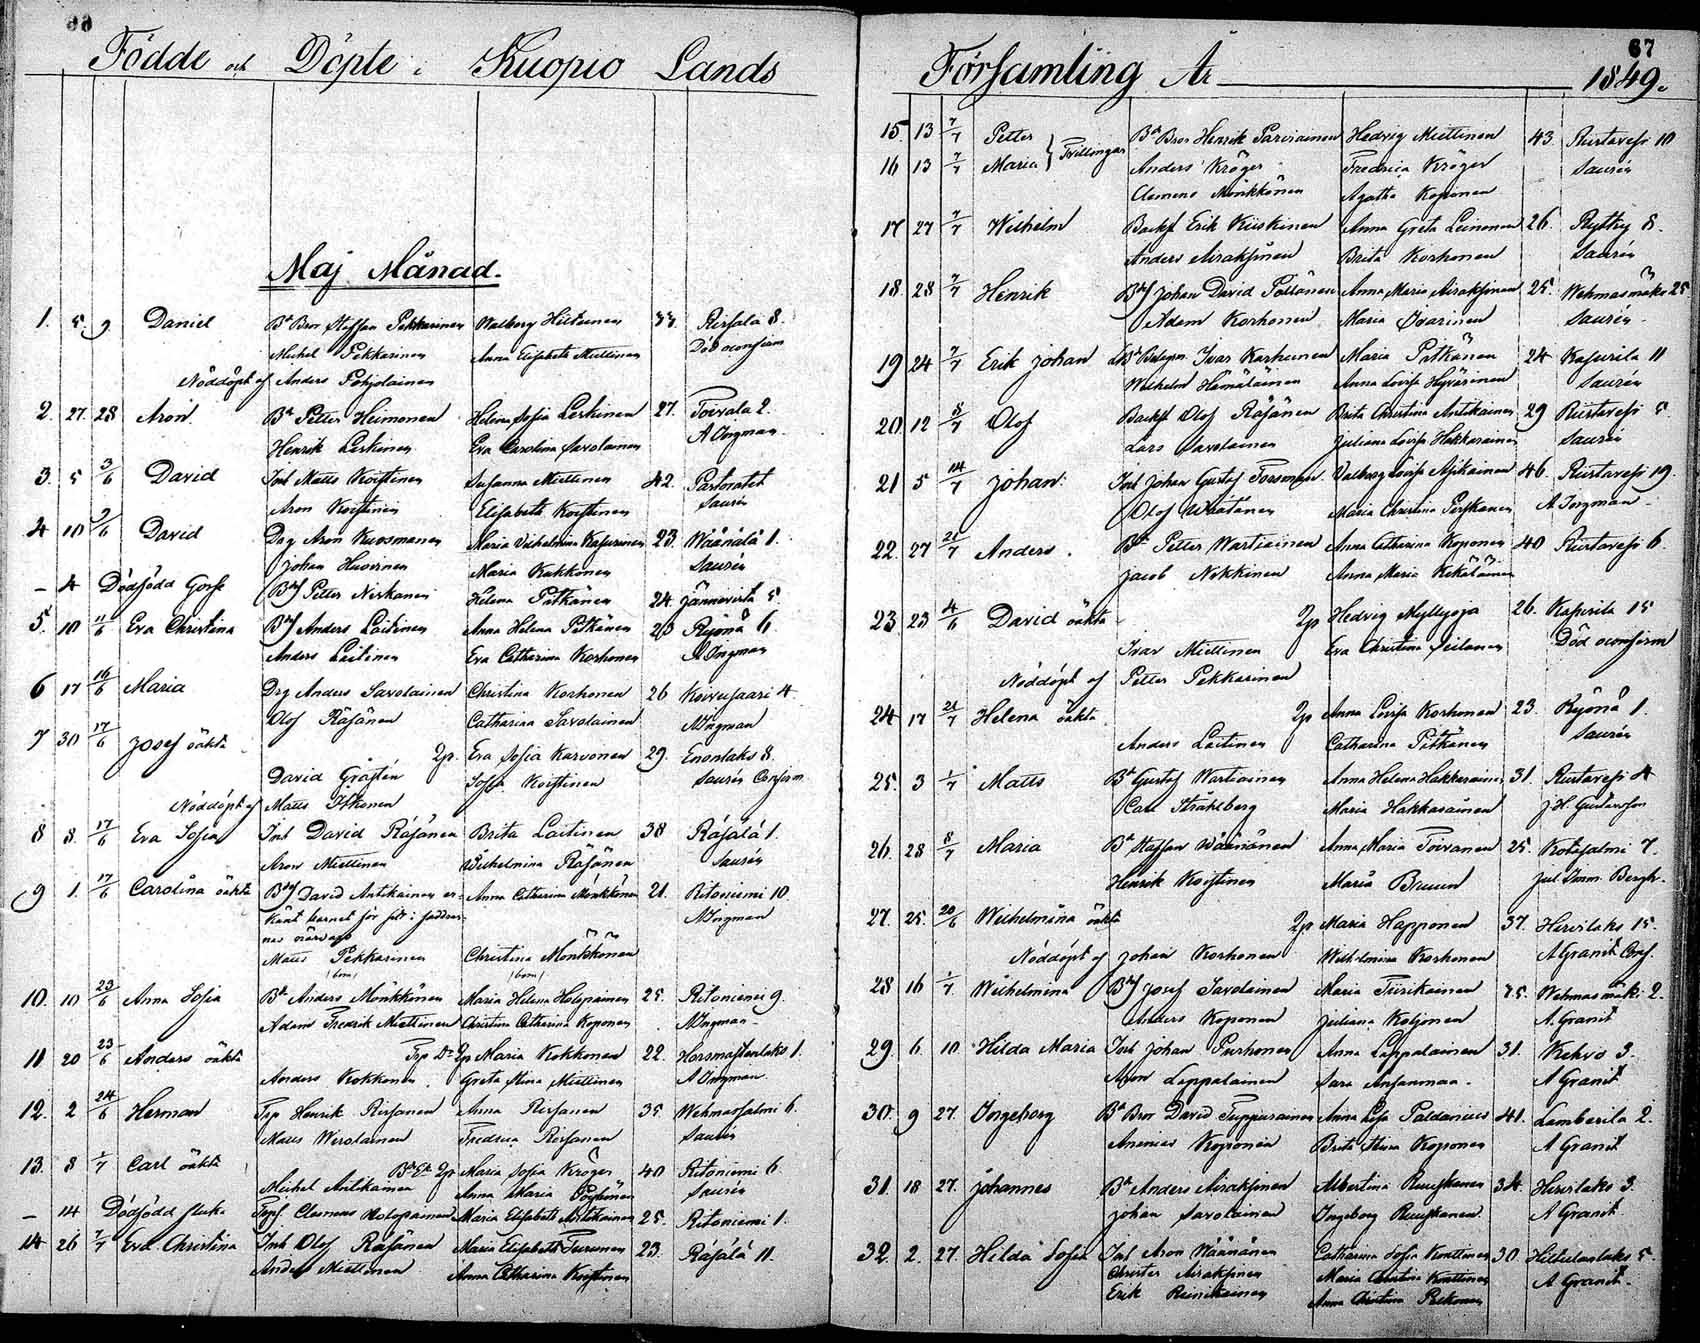 66
Födde och Döpte i Kuopio Lands
Maj Månad.
1. 5. 9 Daniel Bd Bror Staffan Pekkarinen Walborg Hiltunen 33. Riesala 8.
Michel Pekkarinen Anna Elisabeth Miettinen Död oconfirm
Nöddöpt af Anders Pohjolainen
2. 27. 28 Aron Bd Petter Heimonen Helena Sofia Leskinen 27. Toivala 2.
Henrik Leskinen Eva Carolina Savolainen A Ingman
3. 5 3/6 David Inh Matts Koistinen Susanna Miettinen 42. Pastoratet
Aron Koistinen Elisabeth Koistinen Saurén
4 10 3/6 David Drg Aron Kuosmanen Maria Vilhelmina Kasurinen 23. Wäänälä 1.
Johan Huovinen Maria Kukkonen Saurén
- 4 Dödfödd Gosse Bds Petter Niskanen Helena Pitkänen 24. Jännevirta 5
5. 10 11/6 Eva Christina Bds Anders Laitinen Anna Helena Pitkänen 23 Ryönä 6.
Anders Laitinen Eva Catharina Korhonen A Ingman
6 17 16/6 Maria Drg Anders Savolainen Christina Korhonen 26 Koivusaari 4.
Olof Räsänen Catharina Savolainen A Ingman
7 30 17/6 Josef oäkta 2p. Eva Sofia Karvonen 29. Enonlaks 8.
David Gråsten Sofia Koistinen Saurén Conform
Nöddöpt af Matts Itkonen
8 8. 17/6 Eva Sofia Inh David Räsänen Brita Laitinen 38 Räsälä 1.
Aron Miettinen Wilhelmina Räsänen Saurén
9 1. 17/6 Carolina oäkta Bds David Antikainen er- Anna Catharina Mönkkönen 21. Ritoniemi 10.
känt barnet för sit i faddrar- A Ingman
nas närvaro
Matts Pekkarinen Christina Mönkkönen
10. 10 23/6 Anna Sofia Bd Anders Mönkkönen Maria Helena Holopainen 25. Ritoniemi 9.
Adam Fredrik Miettinen Christina Catharina Koponen A Ingman
11 20 23/6 Anders oäkta Trp Dr 2p Maria Kokkonen 22. Horsmastenlaks 1.
Anders Kokkonen Greta Stina Miettinen A Ingman
12. 2 24/6 Herman Trp Henrik Rissanen Anna Rissanen 35 Wehmersalmi 6.
Matts Wirolainen Fredrica Rissanen Saurén
13. 8 1/7 Carl oäkta 2p Maria Sofia Kröger 40 Ritoniemi 6.
Michel Antikainen Anna Maria Pöyhönen Saurén
- 14 Dödfödd flicka Trps. Clemens Holopainen Maria Elisabeth Antikainen 25. Ritoniemi 1.
14 26 7/7 Eva Christina Inh Olof Räsänen Maria Elisabeth Turunen 23. Räsälä 11.
Anders Miettinen Anna Catharina Koistinen
67
Församling År 1849.
15. 13 7/7 Petter } Tvillingar Bd Bror Henrik Parviainen Hedvig Miettinen 43. Riistavesi 10
16 13 7/7 Maria Anders Kröger Fredrica Kröger Saurén
Clemens Mönkkönen Agatha Koponen
17 27 7/7 Wilhelm Backst Erik Kiiskinen Anna Greta Leinonen 26. Ryttky 8.
Anders Airaksinen Brita Korhonen Saurén
18. 28 7/7 Henrik Bds Johan David Pöllänen Anna Maria Airaksinen 25. Wehmasmäki 25
Adam Korhonen Maria Ovarinen Saurén
19 24 7/7 Erik Johan Ivar Karhunen Maria Pitkänen 24 Kasurila 11
Wilhelm Hämäläinen Anna Lovisa Hyvärinen Saurén
20. 12 8/7 Olof Backst Olof Räsänen Brita Christina Antikainen 29 Riistavesi 5
Lars Savolainen Juliana Lovisa Hakkarainen Saurén
21 5 14/7 Johan. Inh Johan Gustaf Forsman Valborg Lovisa Asikainen 46. Riistavesi 19.
Olof Wäätänen Maria Christina Pirskanen A Ingman
22. 27 21/7 Anders. Bd Petter Wartiainen Anna Catharina Koponen 40 Riistavesi 6.
Jacob Nykkinen Anna Maria Kekäläinen
23 23 4/6 David oäkta 2p Hedvig Myllyoja 26. Kasurila 15
Ivar Miettinen Eva Christina Seilonen Död oconfirm
Nöddöpt af Petter Pekkarinen
24 17 21/7 Helena oäkta 2p Anna Lovisa Korhonen 23. Ryönä 1.
Anders Laitinen Catharina Pitkänen Saurén
25. 3 1/7 Matts Bd Gustaf Wartiainen Anna Helena Hakkarainen 31. Riistavesi 4
Carl Stråhlberg Maria Hakkarainen J H. Gustafson
26. 28 8/7 Maria Bd Staffan Wäänänen Anna Maria Toivanen 25. Kotasalmi 7.
Henrik Koistinen Maria Bruun Jul. Imm. Bergh.
27. 25. 20/6 Wilhelmina oäkta 2p Maria Happonen 37. Hirvilaks 15.
Nöddöpt af Johan Korhonen Wilhelmina Korhonen A Granit Conf.
28 16 1/7 Wilhelmina Bds Josef Savolainen Maria Tiirikainen 35. Wehmasmäki 2.
Anders Koponen Juliana Koljonen A. Granit
29 6. 10 Hilda Maria Inh Johan Purhonen Anna Lappalainen 31. Kehvo 3.
Aron Lappalainen Sara Ansanmaa. A Granit
30. 9 27. Ingeborg Bd Bror David Tuppurainen Anna Lisa Paldanius 41. Lamberila 2.
Ananias Koponen Brita Stina Koponen A Granit
31. 18 27. Johannes Bd Anders Airaksinen Albertina Ruuskanen 34. Hirvilaks 3.
Johan Savolainen Ingeborg Ruuskanen A Granit
32. 2. 27 Hilda Sofia Inh Aron Wäänänen Catharina Sofia Konttinen 30. Hiltulanlaks 5.
Christer Airaksinen Maria Christina Konttinen A Granit.
Erik Reinikainen Anna Christina Pirkonen